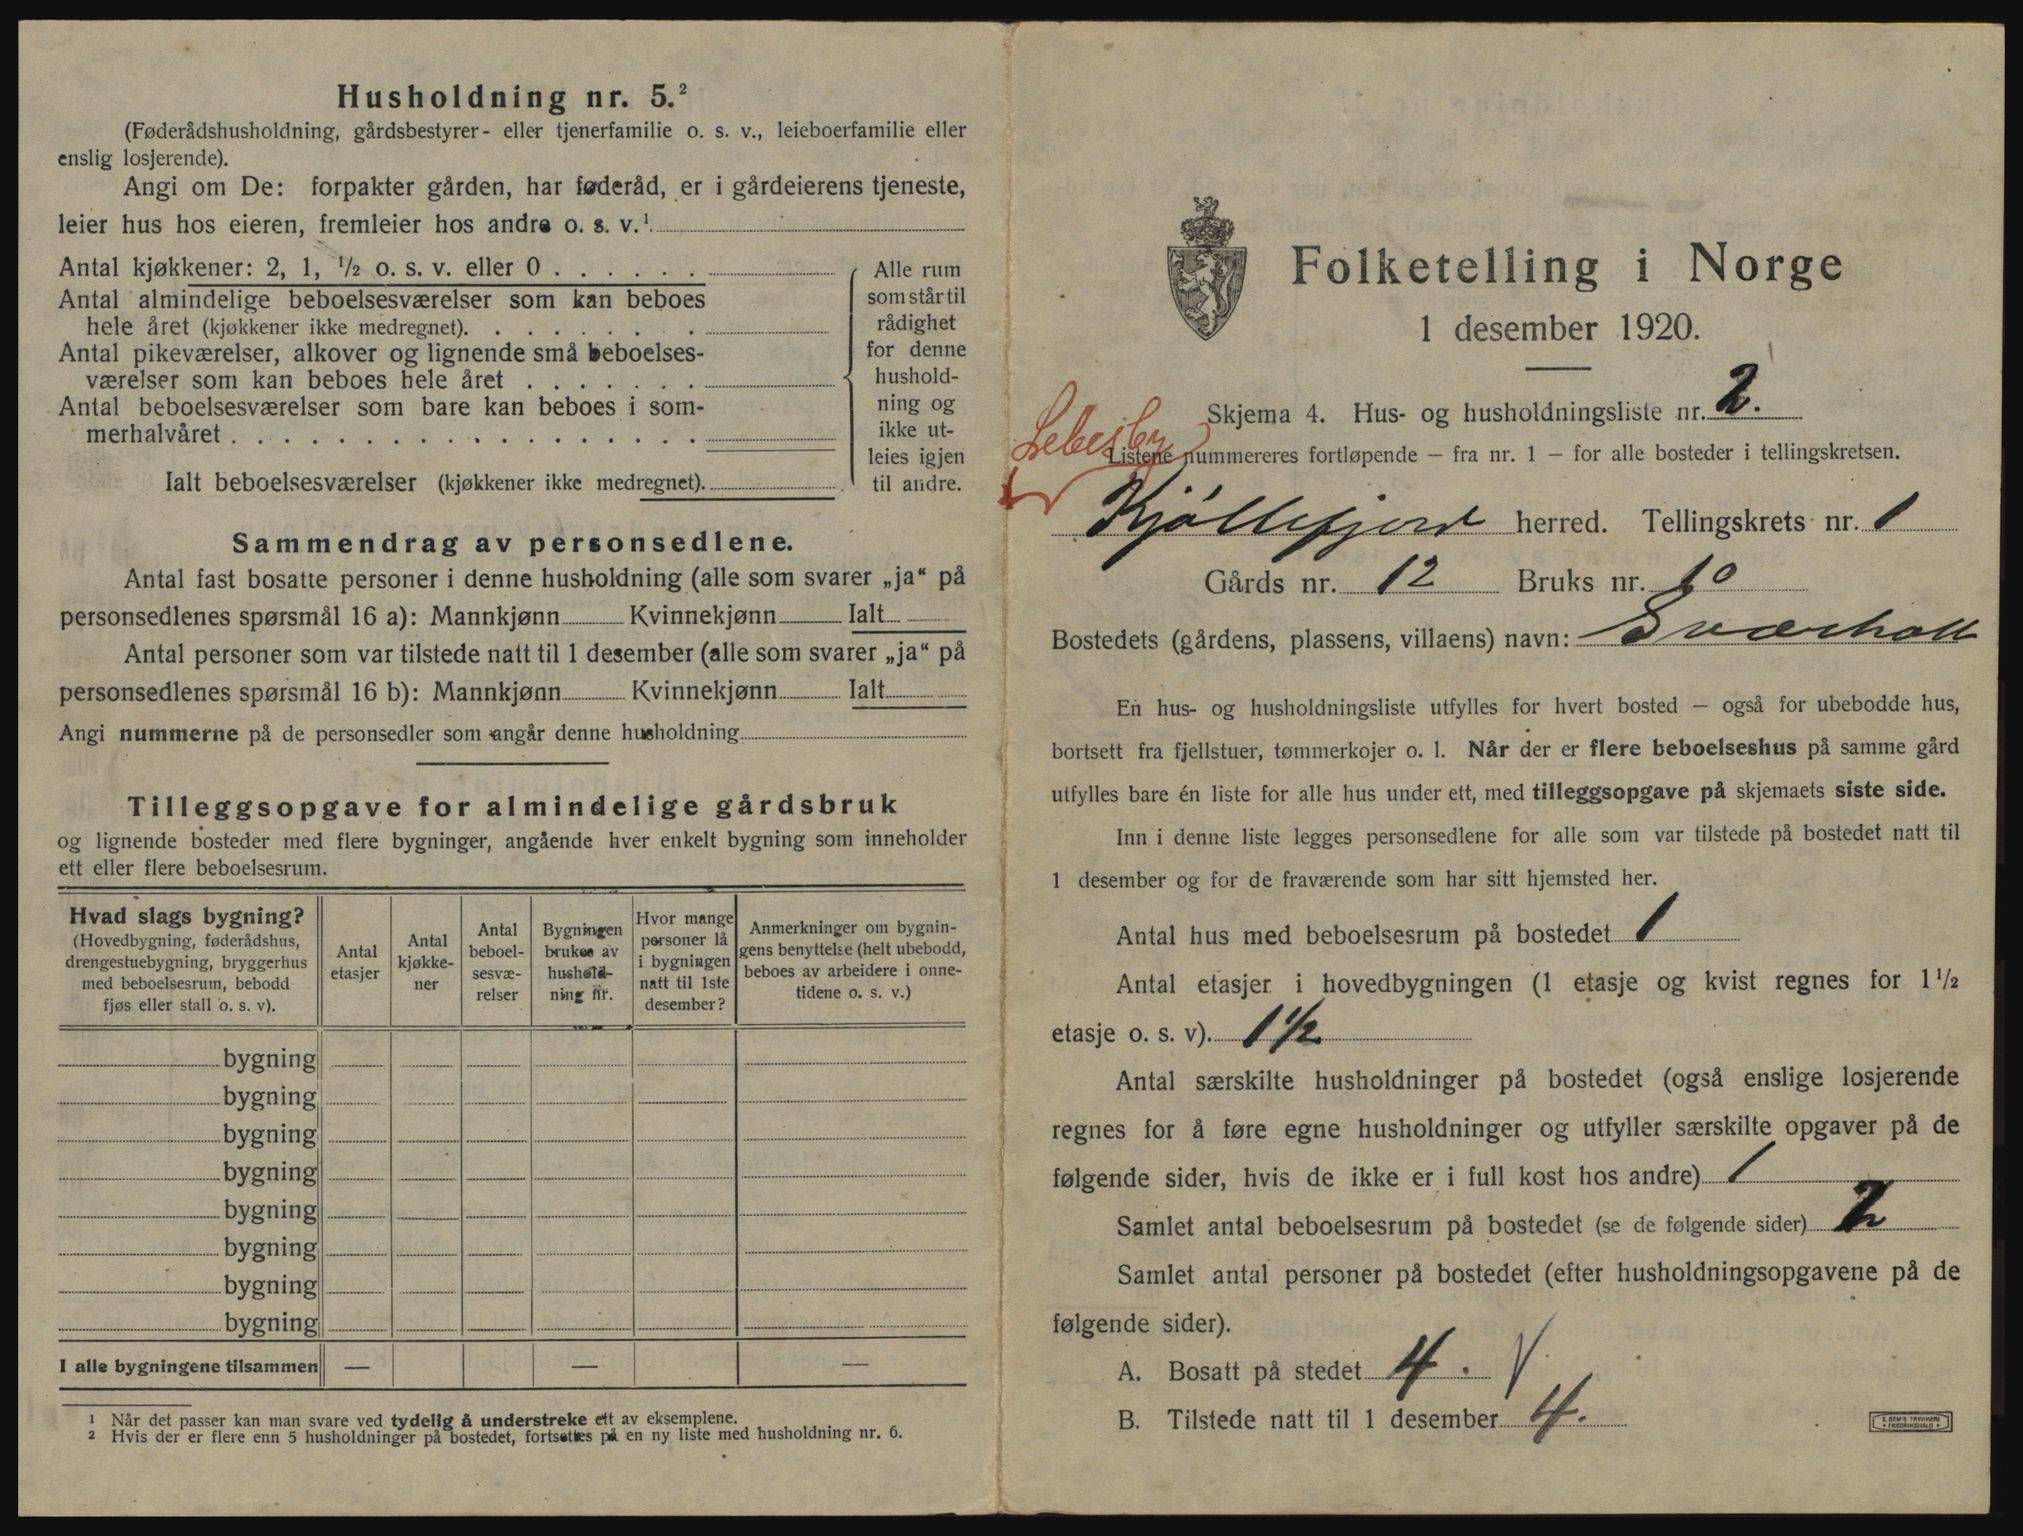 Husholdning nr. 5.²
(Føderådshusholdning, gårdsbestyrer- eller tjenerfamilie o. s. v., leieboerfamilie eller
enslig losjerende).
Angi om De: forpakter gården, har føderåd, er i gårdeierens tjeneste,
leier hus hos eieren, fremleier hos andre o. s. v.¹
Antal kjøkkener: 2, 1, ½ o. s. v. eller 0 . . . . . .
Antal almindelige beboelsesværelser som kan beboes
hele året (kjøkkener ikke medregnet). . . . . . . . .
Antal pikeværelser, alkover og lignende små beboelses-
værelser som kan beboes hele året . . . . . . .
Antal beboelsesværelser som bare kan beboes i som-
merhalvåret . . . . . . . . . . . . . . . . . .
Ialt beboelsesværelser (kjøkkener ikke medregnet).
Alle rum
som står til
rådighet
for denne
hushold-
ning og
ikke ut-
leies igjen
til andre.
Sammendrag av personsedlene.
Antal fast bosatte personer i denne husholdning (alle som svarer „ja“ på
personsedlenes spørsmål 16 a): Mannkjønn Kvinnekjønn Ialt
Antal personer som var tilstede natt til 1 desember (alle som svarer „ja“ på
personsedlenes spørsmål 16 b): Mannkjønn Kvinnekjønn Ialt
Angi nummerne på de personsedler som angår denne husholdning
Tilleggsopgave for almindelige gårdsbruk
og lignende bosteder med flere bygninger, angående hver enkelt bygning som inneholder
ett eller flere beboelsesrum.
Hvad slags bygning?
(Hovedbygning, føderådshus,
drengestuebygning, bryggerhus
med beboelsesrum, bebodd
fjøs eller stall o. s. v).
Antal
etasjer
Antal
kjøkke-
ner
Antal
beboel-
sesvæ-
relser
Bygningen
brukes av
hushold-
ning nr.
Hvor mange
personer lå
i bygningen
natt til 1ste
desember?
Anmerkninger om bygnin-
gens benyttelse (helt ubebodd,
beboes av arbeidere i onne-
tidene o. s. v.)
bygning
bygning
bygning
bygning
bygning
bygning
bygning
bygning
I alle bygningene tilsammen — — —
¹ Når det passer kan man svare ved tydelig å understreke ett av eksemplene.
² Hvis der er flere enn 5 husholdninger på bostedet, fortsettes på en ny liste med husholdning nr. 6.
Folketelling i Norge
1 desember 1920.
Skjema 4. Hus- og husholdningsliste nr. 2.
Lebesby
Listene nummereres fortløpende – fra nr. 1 – for alle bosteder i tellingskretsen.
Kjøllefjord herred. Tellingskrets nr. 1
Gårds nr. 12 Bruks nr. 10
Bostedets (gårdens, plassens, villaens) navn: Sværholt
En hus- og husholdningsliste utfylles for hvert bosted – også for ubebodde hus,
bortsett fra fjellstuer, tømmerkojer o. l. Når der er flere beboelseshus på samme gård
utfylles bare én liste for alle hus under ett, med tilleggsopgave på skjemaets siste side.
Inn i denne liste legges personsedlene for alle som var tilstede på bostedet natt til
1 desember og for de fraværende som har sitt hjemsted her.
Antal hus med beboelsesrum på bostedet 1
Antal etasjer i hovedbygningen (1 etasje og kvist regnes for 1½
etasje o. s. v). 1½
Antal særskilte husholdninger på bostedet (også enslige losjerende
regnes for å føre egne husholdninger og utfyller særskilte opgaver på de
følgende sider, hvis de ikke er i full kost hos andre) 1
Samlet antal beboelsesrum på bostedet (se de følgende sider) 2
Samlet antal personer på bostedet (efter husholdningsopgavene på de
følgende sider).
A. Bosatt på stedet 4. V
B. Tilstede natt til 1 desember 4.
E. SEM'S TRYKKERI
FREDRIKSHALD